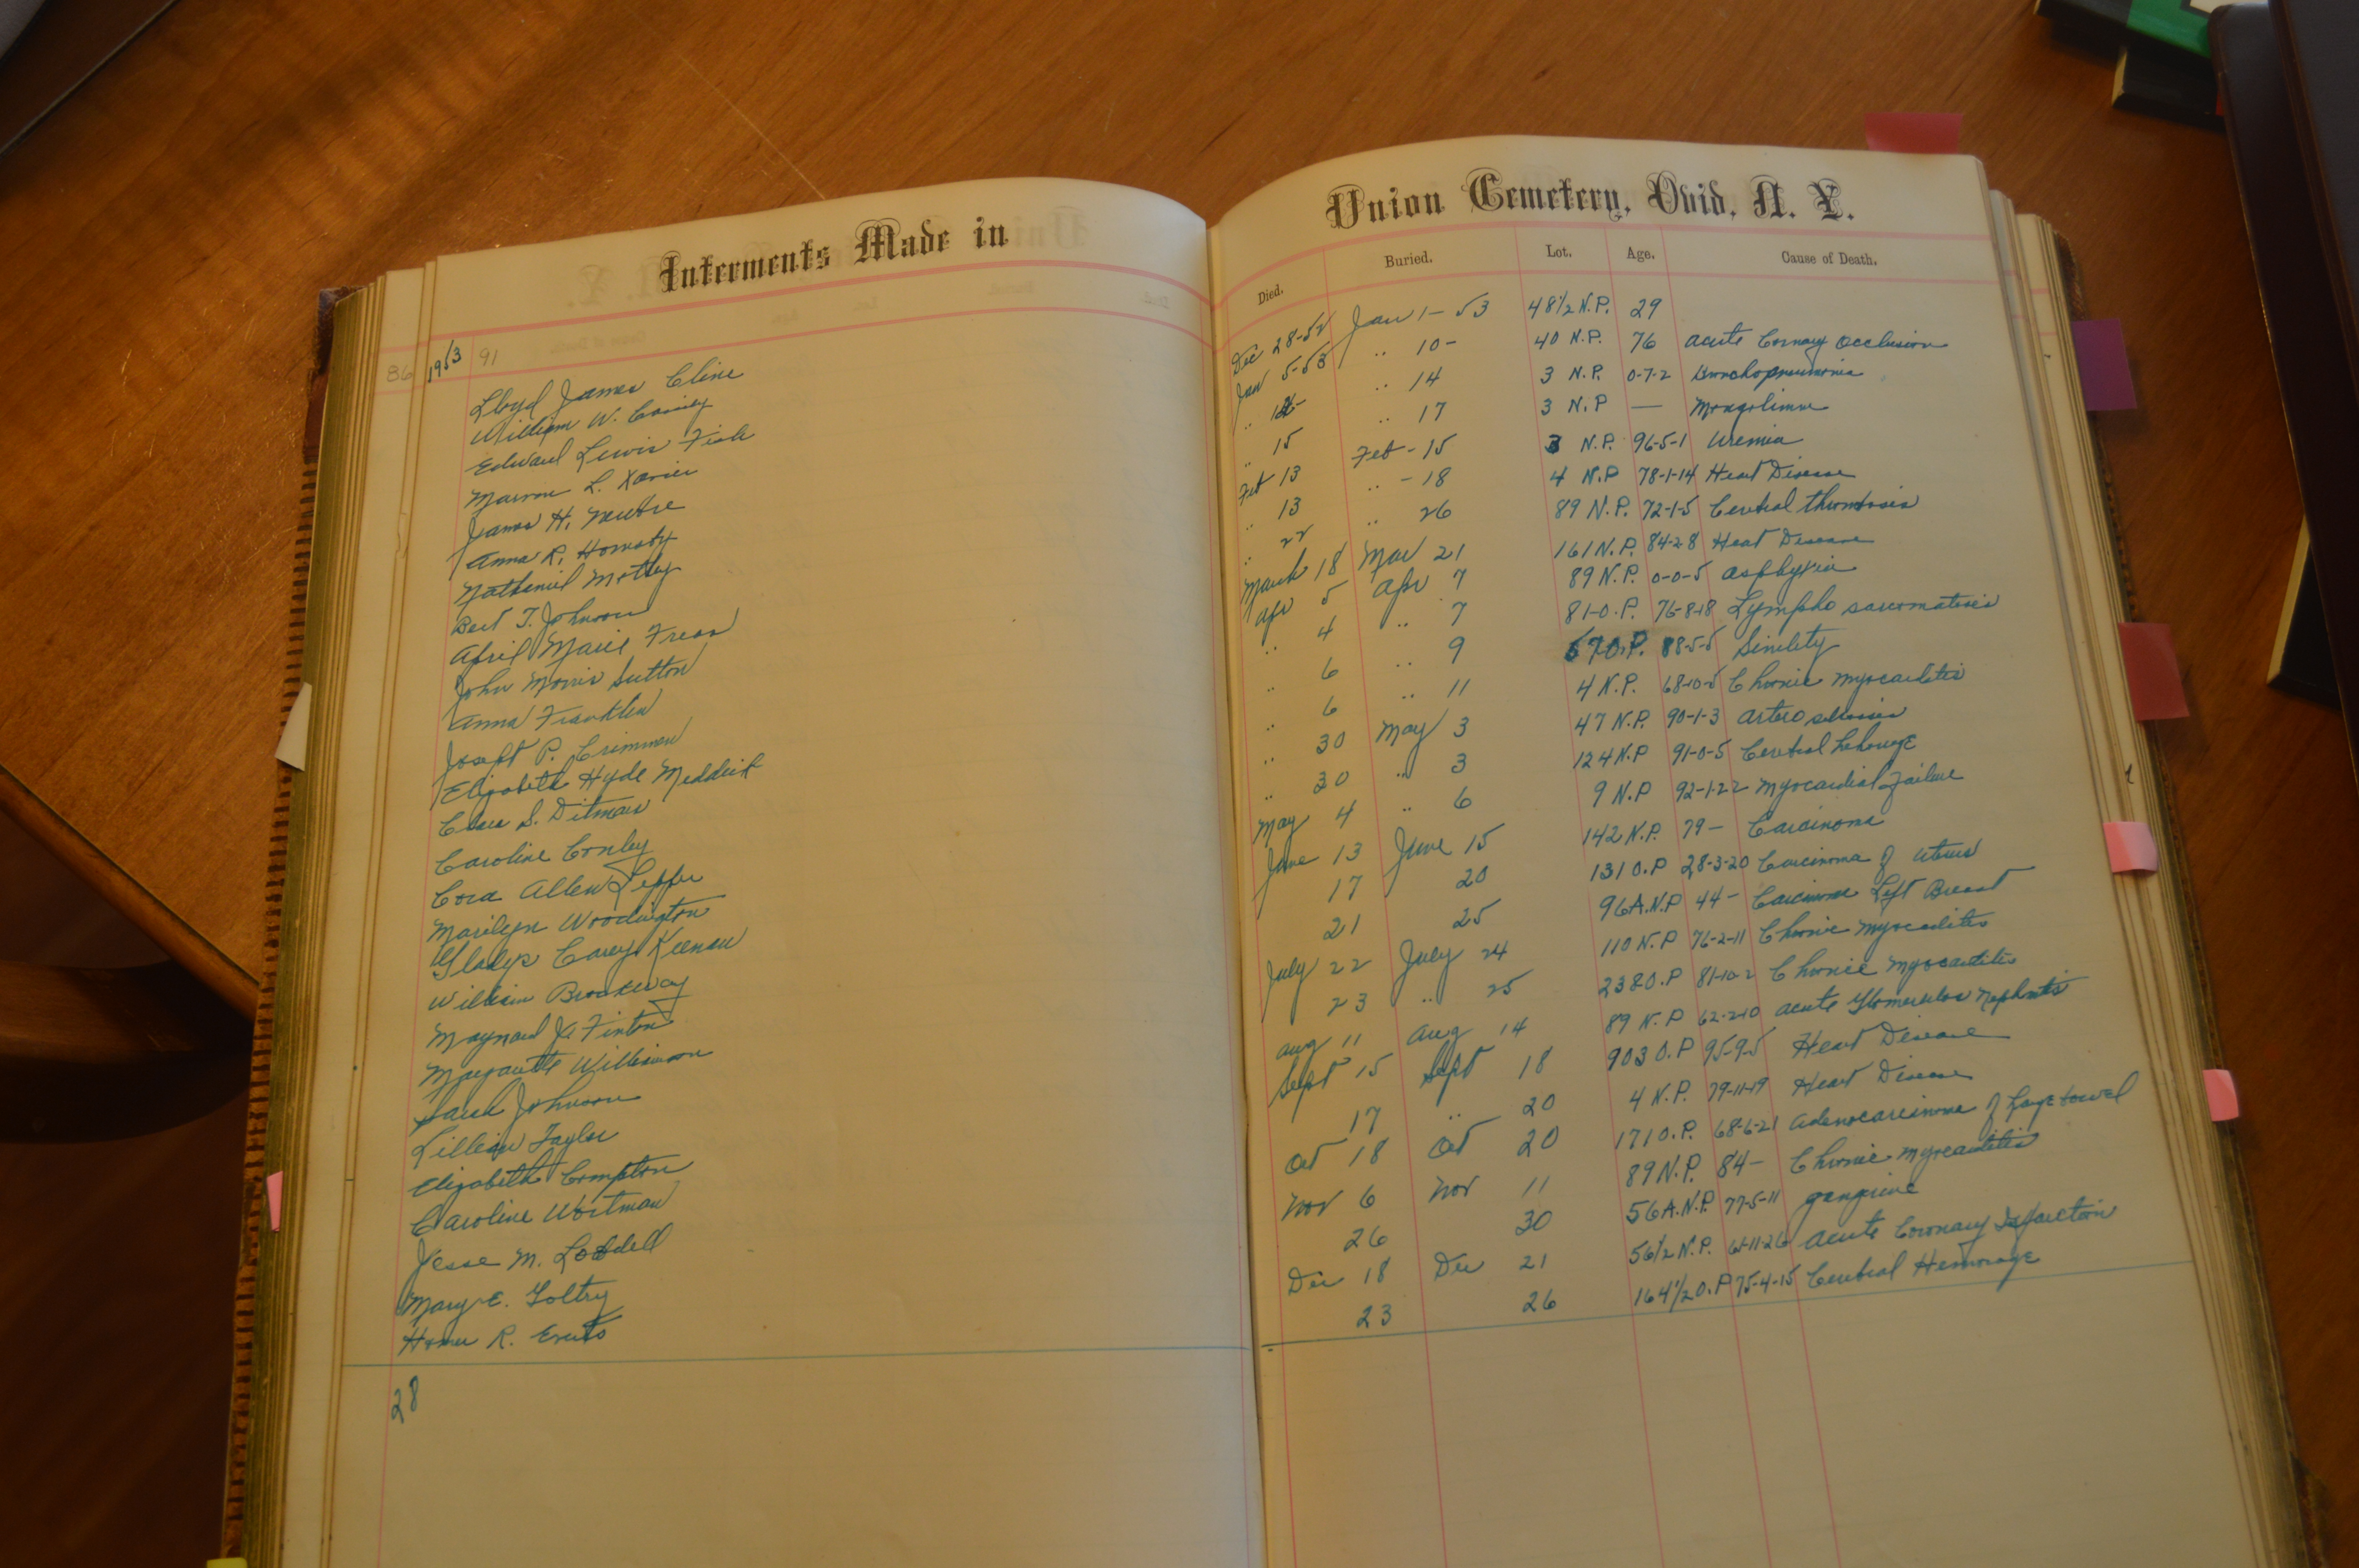 Interments Made in
86 1953 91
Lloyd James Cline
William W.
Edward Lewis Fish
L. Xavier
James H.
Anna R. Hornsby
Nathaniel Motley
Bert T. Johnson
April Marie Freas
John Morris Sutton
Anna Franklin
Joseph P. Crimmen
Elizabeth Hyde Meddick
S. Ditmars
Caroline Conley
Cora Allen Lepper
Marilyn Woodington
Gladys Carey Keenan
William Brokway
Maynard J. Finton
Williamson
Sarah Johnson
Lillian Taylor
Elizabeth Compton
Caroline Wortman
Jesse M. Lobdell
Mary E. Goltry
Homer R. Everts
28
Union Cemetery, Ovid, N. Y.
Died. Buried. Lot. Age. Cause of Death.
Dec 28-52 Jan 1-53 48 1/2 N.P. 29
Jan 5-53 .. 10- 40 N.P. 76 Acute Cornary Occlusion
.. .. 14 3 N.P. 0-7-2 Bronchopneumonia
.. 15 .. 17 3 N.P — Mongolism
Feb 13 Feb - 15 3 N.P. 96-5-1 Uremia
.. 13 .. - 18 4 N.P 78-1-14 Heart Disease
.. 22 .. 26 89 N.P. 72-1-5 Cerebral thrombosis
March 18 Mar 21 161 N.P. 84-2-8 Heart Disease
Apr 5 Apr 7 89 N.P. 0-0-5 Asphyxia
.. 4 .. 7 81-O.P. 76-8-18 Lympho sarcomatosis
.. 6 .. 9 67 O.P. 88-5-5 Sinility
.. 6 .. 11 4 N.P. 68-10-5 Chronic Myocarditis
.. 30 May 3 47 N.P. 90-1-3 Artero
.. 30 .. 3 124 N.P 91-0-5 Cerebral
May 4 .. 6 9 N.P 92-1-22 Myocardial Failure
June 13 June 15 142 N.P. 79- Carcinoma
17 20 131 O.P 28-3-20 Carcinoma of Uterus
21 25 96A.N.P 44- Carcinoma Left Breast
July 22 July 24 110 N.P 76-2-11 Chronic Myocarditis
23 .. 25 238 O.P 81-10-2 Chronic Myocarditis
Aug 11 Aug 14 89 N.P 62-2-10 Acute Glomerulos Nephritis
Sept 15 Sept 18 903 O.P 95-9-5 Heart Disease
17 .. 20 4 N.P. 79-11-19 Heart Disease
Oct 18 Oct 20 171 O.P. 68-6-21 Adenocarcinoma of Large bowel
Nov 6 Nov 11 89 N.P. 84- Chronic Myocarditis
26 30 56A.N.P 77-5-11 gangrine
Dec 18 Dec 21 56 1/2 N.P. 61-11-26 Acute Coronary Infarction
23 26 164 1/2 O.P 75-4-15 Cerebral Hemorage